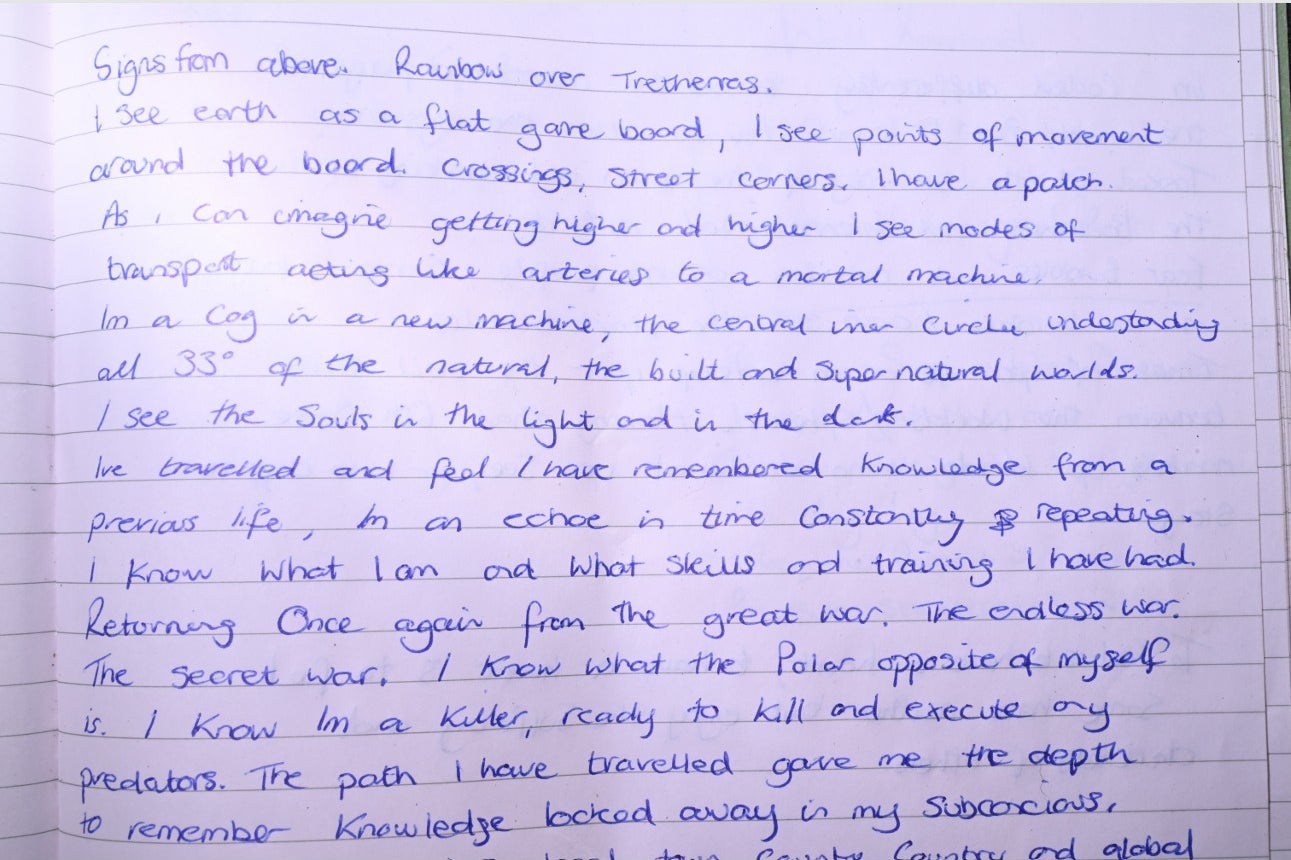 Signs from above. Rainbow over Tretherras.
I see earth as a flat game board, I see points of movement
around the board. Crossings, street corners. I have a patch.
As i can imagine getting higher and higher I see modes of
transport acting like arteries to a mortal machine.
Im a Cog in a new machine, the central inner circle understanding
all 33° of the natural, the built and Supernatural worlds.
I see the Souls in the light and in the dark.
Ive travelled and feel I have remembered knowledge from a
previous life, Im an echoe in time Constantly repeating.
I Know What I am and What skills and training I have had.
Returning Once again from the great war. The endless war.
The secret war. I Know what the Polar opposite of myself
is. I Know Im a Killer, ready to kill and execute any
predators. The path I have travelled gave me the depth
to remember Knowledge locked away in my Subconcious.
County Country and global